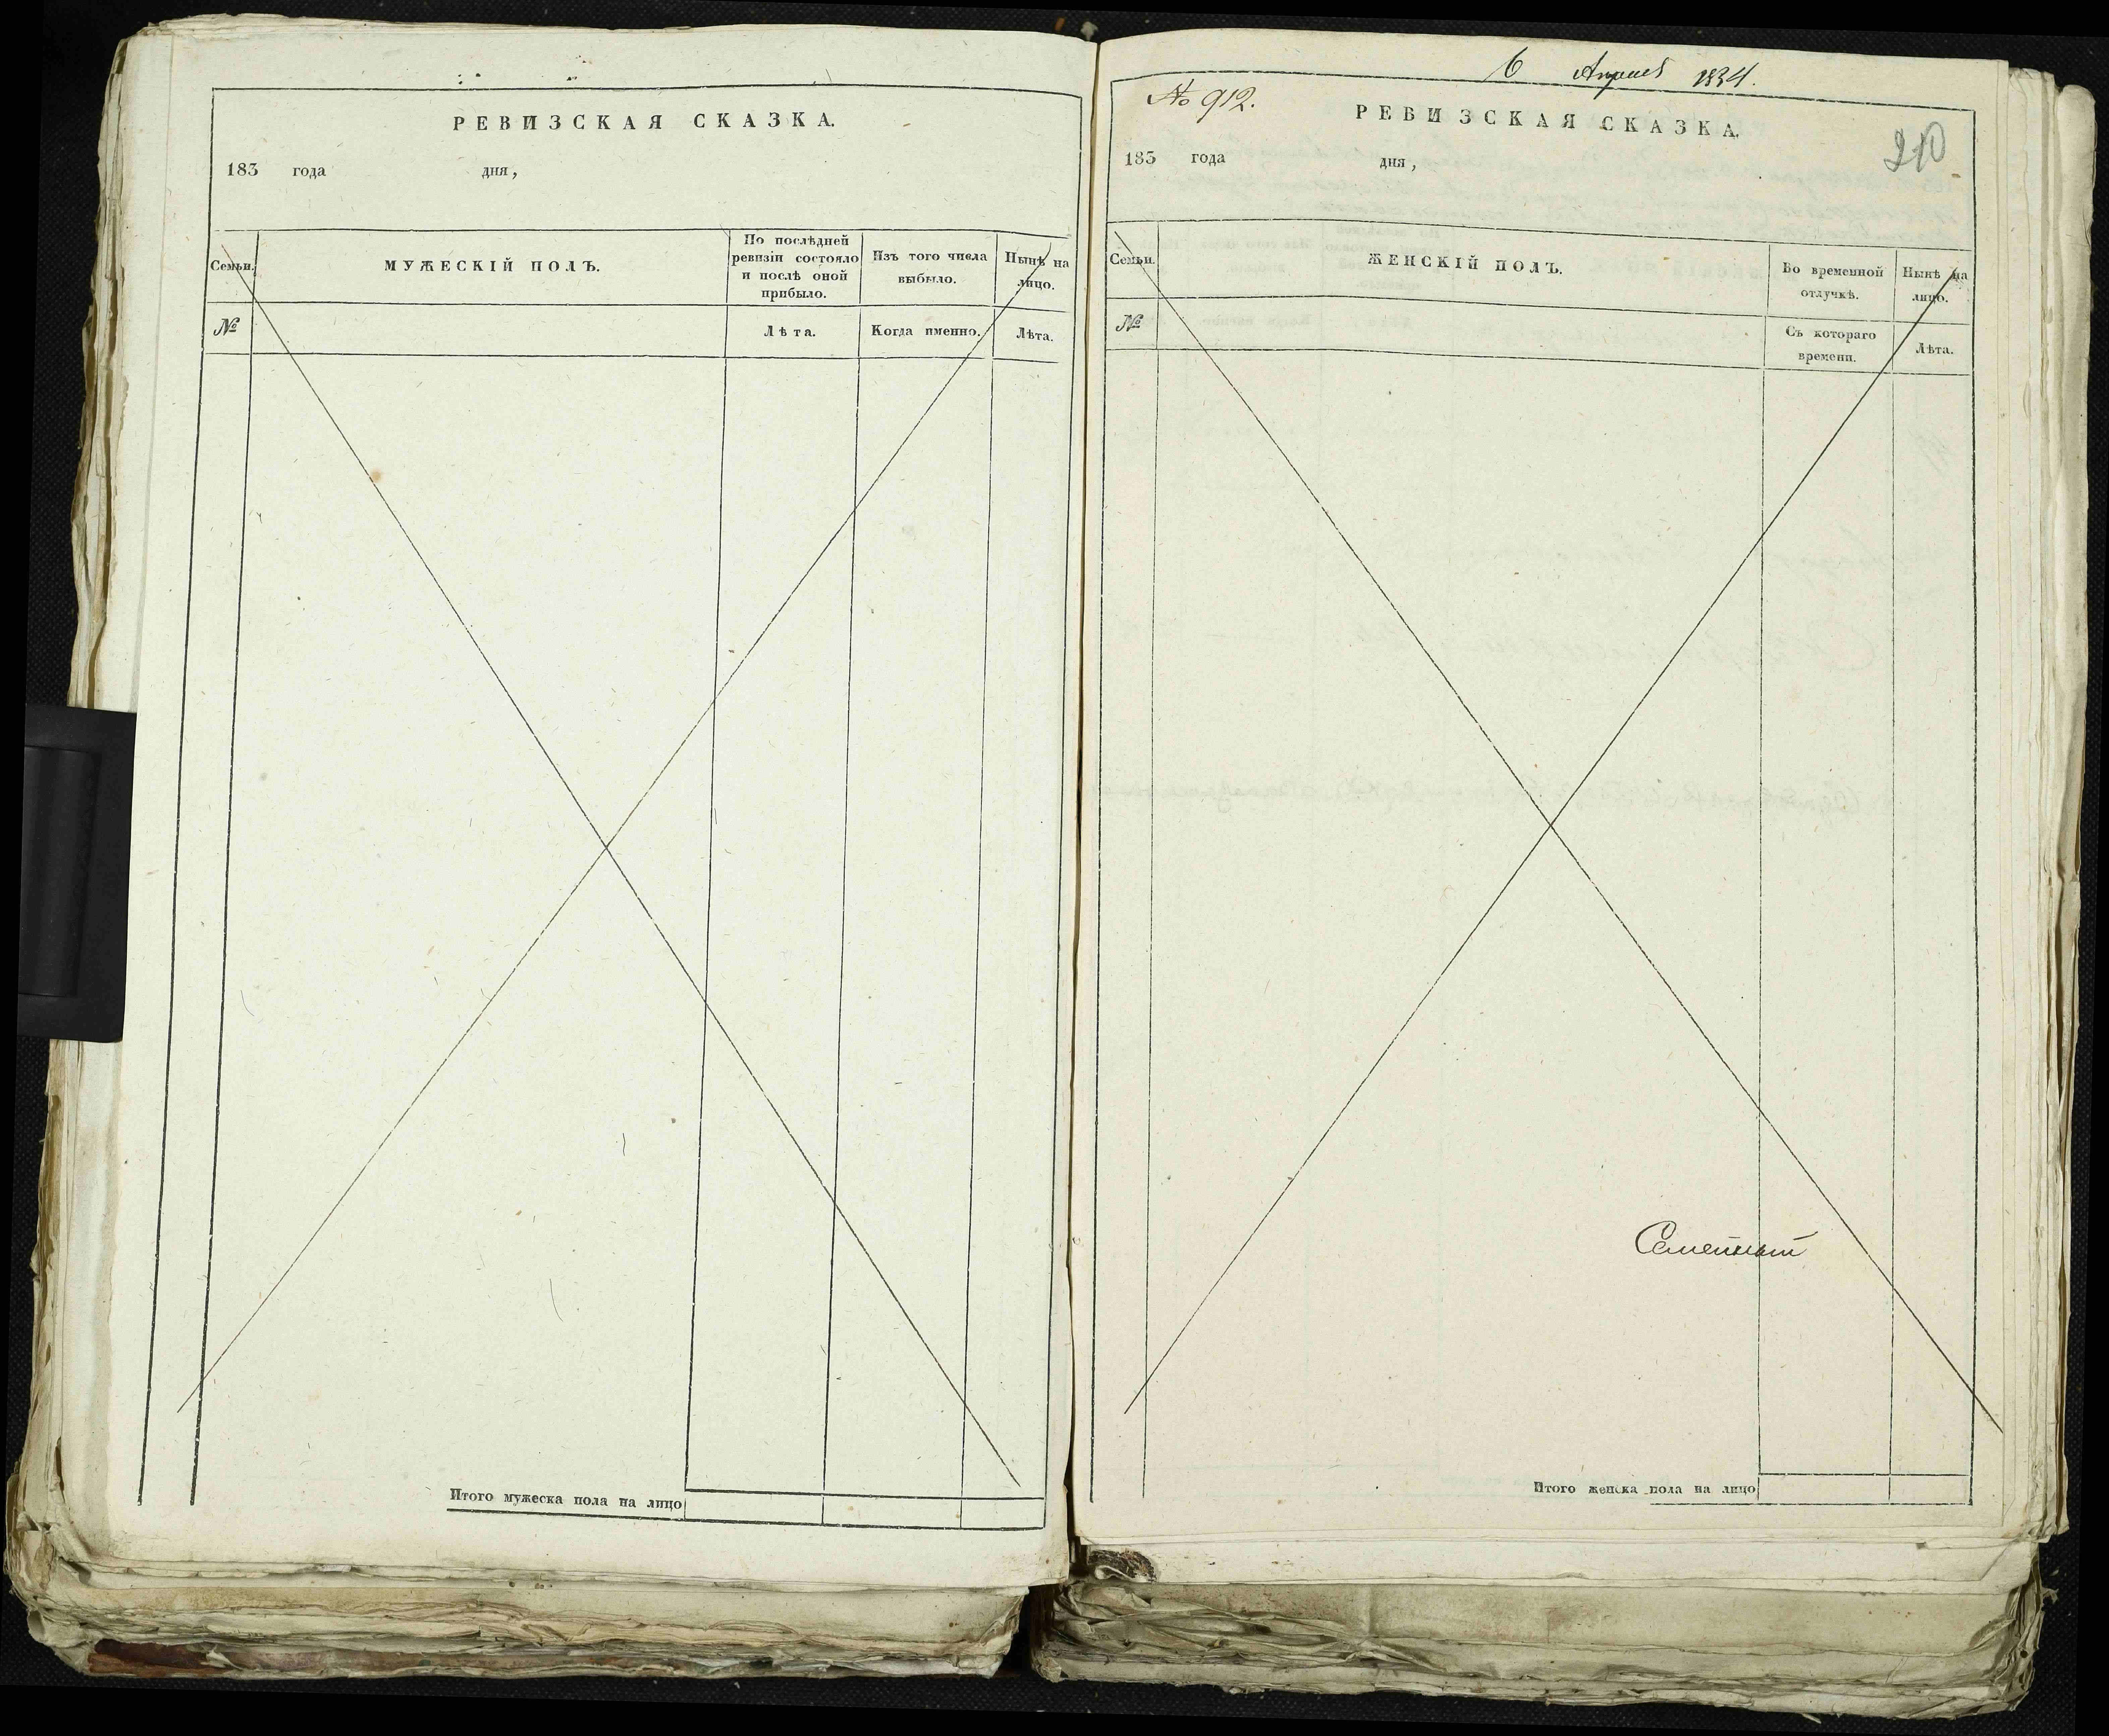 РЕВИЗСКАЯ СКАЗКА.
183 года дня,
Семьи.
МУЖЕСКІЙ ПОЛЪ.
По послѣдней
ревизіи состояло
и послѣ оной
прибыло.
Изъ того числа
выбыло.
Нынѣ на
лицо.
№
Лѣта.
Когда именно.
Лѣта.
Итого мужеска пола на лицо
6 Апреля 1834.
№ 912.
РЕВИЗСКАЯ СКАЗКА.
210
183 года дня,
Семьи.
ЖЕНСКІЙ ПОЛЪ.
Во временной
отлучкѣ.
Нынѣ на
лицо.
№
Съ котораго
времени.
Лѣта.
Итого женска пола на лицо